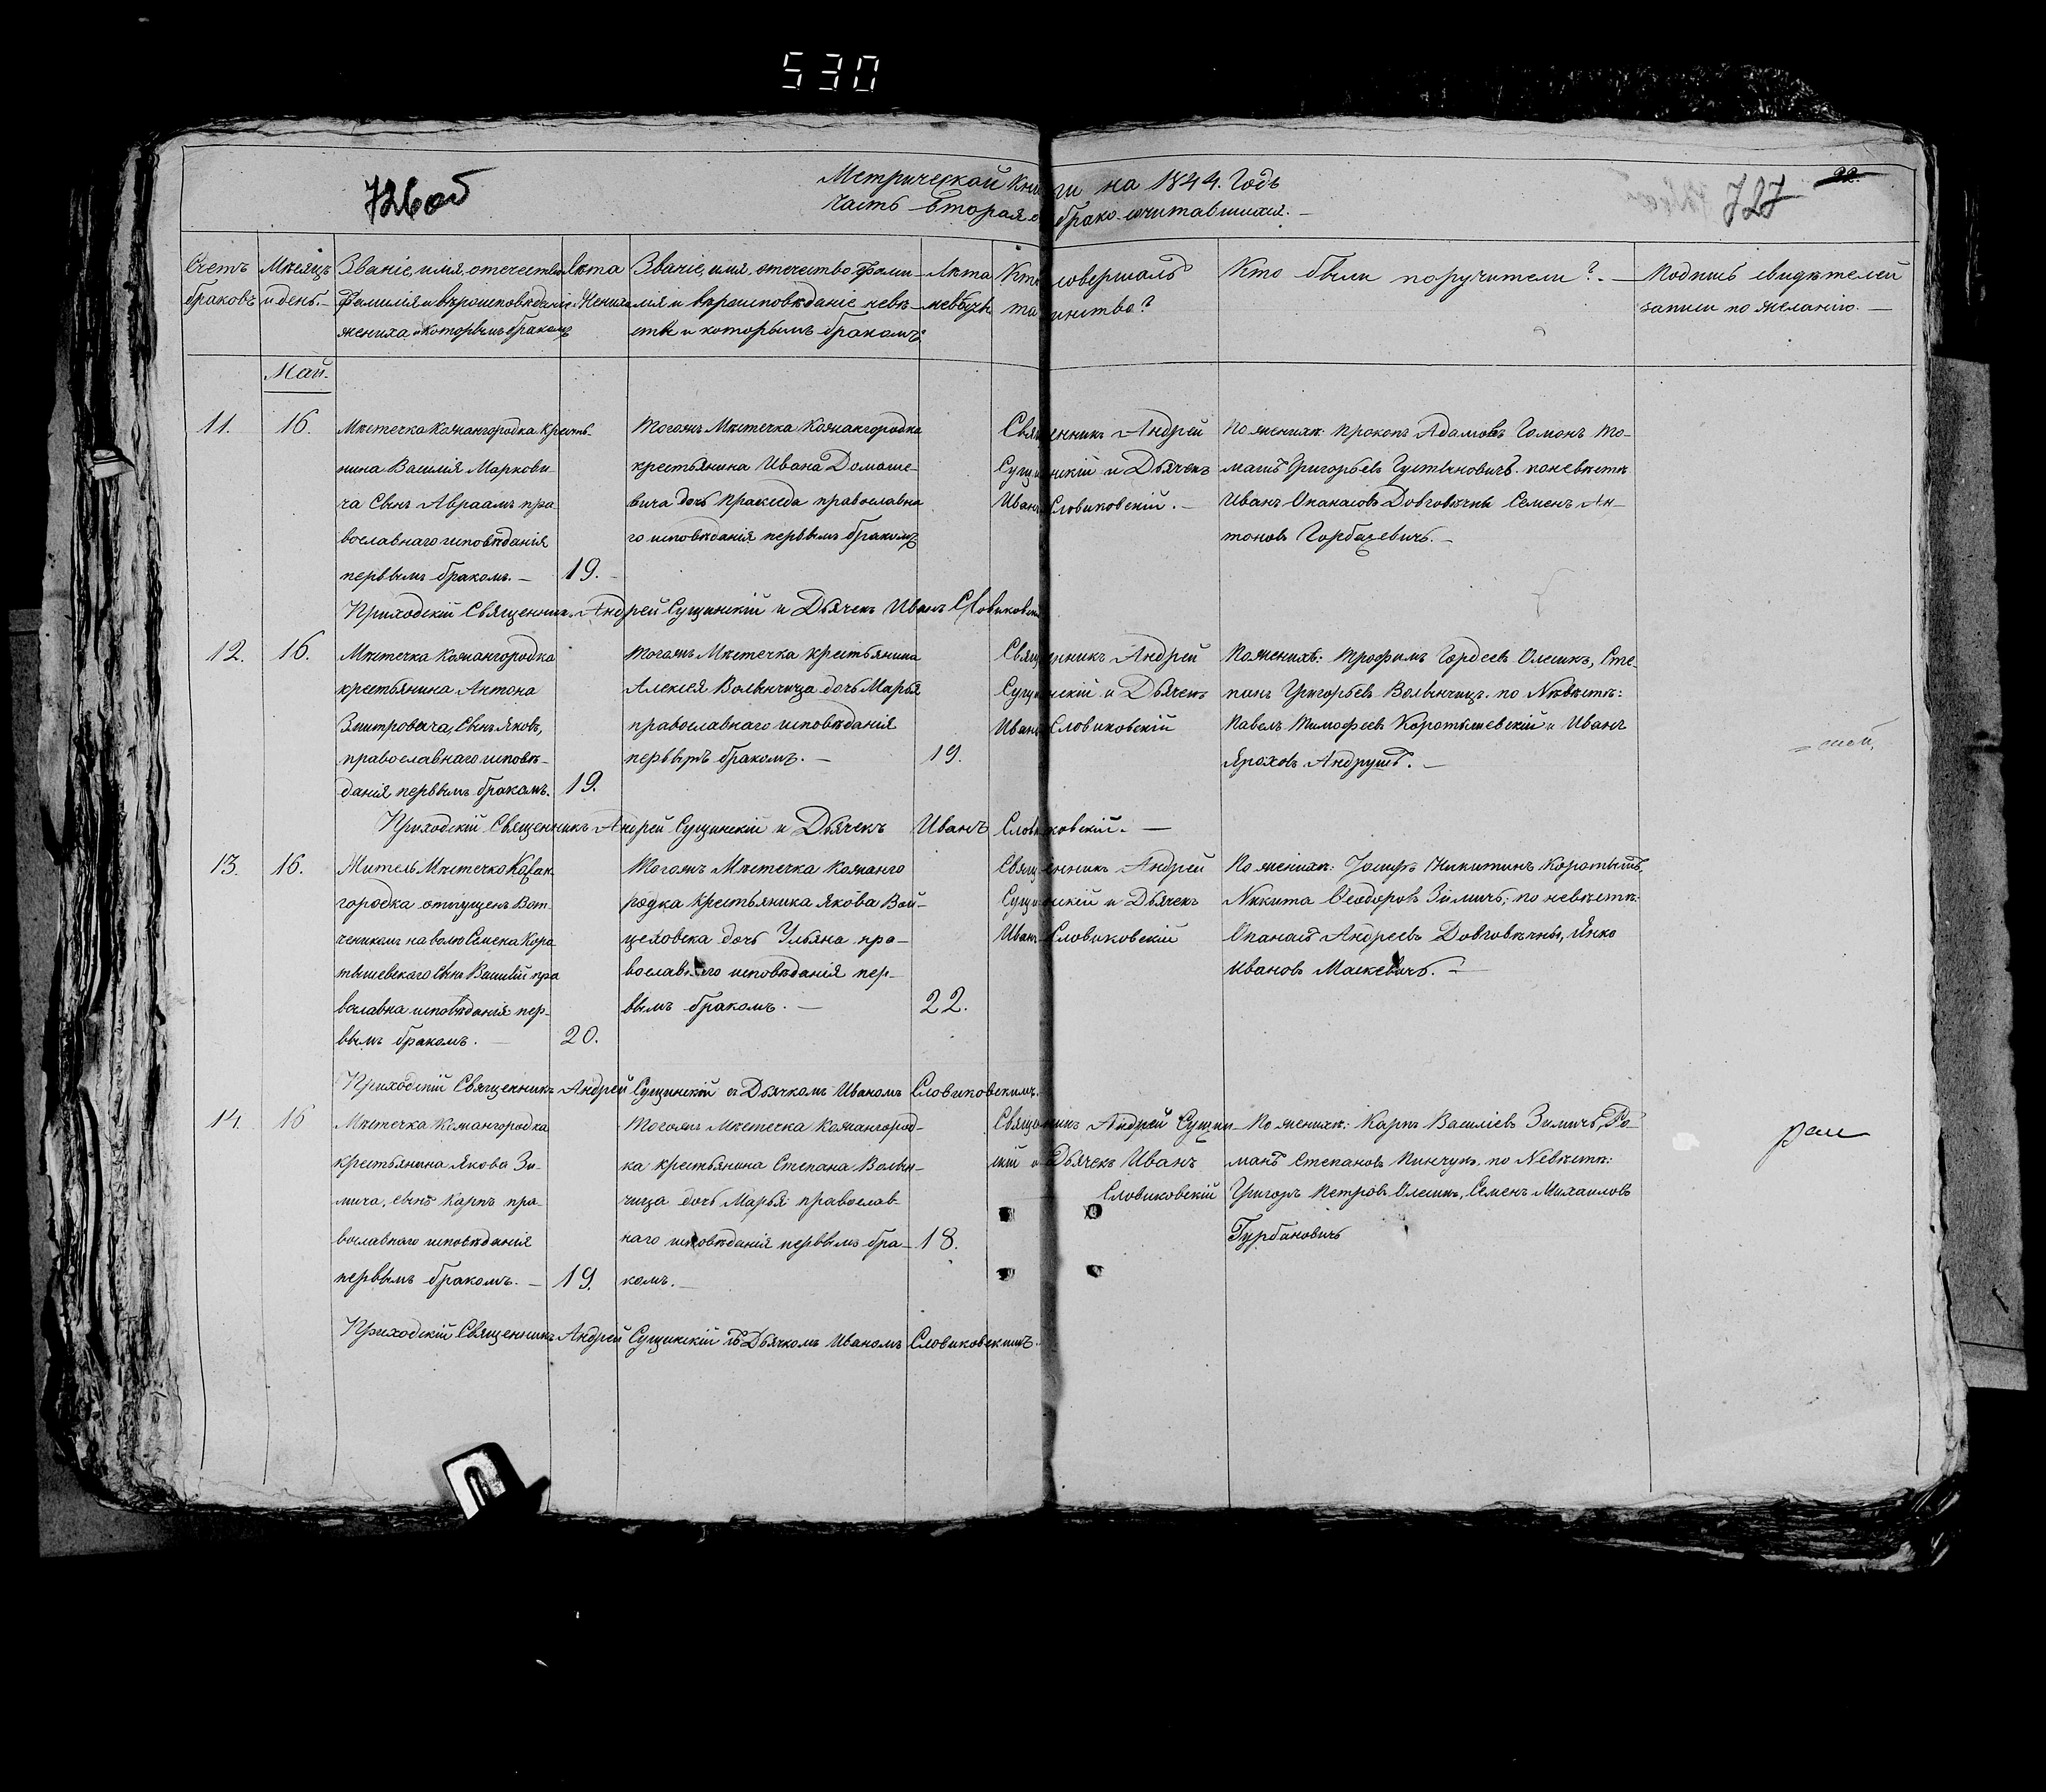 530
726об
Метрической Книги на 1844. Годъ
Часть вторая о бракосочитавшихся. —
22.
727
Счетъ браковъ
Мѣсяцъ и день. —
Званіе, имя, отечество Фамилія и вѣроисповѣданіе жениха и которымъ бракомъ
Лѣта Жениха
Званіе, имя, отечество, Фами-
лія и вѣроисповѣданіе невѣ-
сты и которымъ бракомъ:
Лѣта невѣсты
Кто совершалъ
таинство?
Кто были поручители? —
Подпись свидѣтелей
записи по желанію. —
Май.
11.
16.
Мѣстечка Кожангородка Крестья-
нина Василія Маркови-
ча Сынъ Авраамъ пра
вославнаго исповѣданія
первымъ бракомъ. —
19.
Тогожъ Мѣстечка Кожангородка
крестьянина Ивана Домаше-
вича дочь Пракседа православна
го исповѣданія первымъ бракомъ
Священникъ Андрей
Сущинскій и Дьячекъ
Иванъ Словиковскій. —
По женихѣ: Прокопъ Адамовъ Гомонъ То-
машъ Григорьевъ Густыновичъ. по невѣстѣ
Иванъ Опанасовъ Довговѣчны Семенъ Ан-
тоновъ Горбацевичъ. —
Приходскій Священникъ Андрей Сущинскій и Дьячекъ Иванъ Словиковскій
12.
16.
Мѣстечка Кожангородка
крестьянина Антона
Змитровича, Сынъ Яковъ,
православнаго исповѣ-
данія первымъ бракомъ.
19.
Тогожъ Мѣстечка крестьянина
Алексея Волынчица дочь Марья
православнаго исповѣданія
первымъ бракомъ. —
19.
Священникъ Андрей
Сущинскій и Дьячекъ
Иванъ Словиковскій
По женихѣ: Трофимъ Гордеевъ Олешикъ, Сте-
панъ Григорьевъ Волынчицъ. по Невѣстѣ:
Павелъ Тимофеевъ Коротышевскій и Иванъ
Яроховъ Андрушъ. —
Приходскій Священникъ Андрей Сущинскій и Дьячекъ Иванъ Словиковскій. —
13.
16.
Житель Мѣстечко Кожан
городка отпущенъ Вот
чениконъ на волю Семена Коро
тышевскаго сынъ Василій пра
вославна исповѣданія пер-
вымъ бракомъ. —
20.
Тогожъ Мѣстечка Кожанго
родка Крестьянина Якова Вой-
цеховска дочь Ульяна пра-
вославнаго исповѣданія пер-
вымъ бракомъ. —
22.
Священникъ Андрей
Сущинскій и Дьячекъ
Иванъ Словиковскій
По женихѣ: Іосифъ Никитинъ Коротышъ,
Никита Ѳеодоровъ Зимичъ; по невѣстѣ:
Опанасъ Андреевъ Довговѣчны, Янко
Ивановъ Маскевичъ. —
Приходскій Священникъ Андрей Сущинскій съ Дьячкомъ Иваномъ Словиковскимъ.
14.
16
Мѣстечка Кожангородка
крестьянина Якова Зи-
мича, сынъ Карпъ пра-
вославнаго исповѣданія
первымъ бракомъ. —
19.
Тогожъ Мѣстечка Кожангород-
ка крестьянина Степана Волын-
чица дочь Марья православ-
наго исповѣданія первымъ бра-
комъ. —
18.
Священникъ Андрей Сущин-
скій и Дьячекъ Иванъ
Словиковскій
По женихѣ: Карпъ Василіевъ Зимичъ, Ро-
манъ Степановъ Пинчукъ. по Невѣстѣ:
Григоръ Петровъ Олешикъ, Семенъ Михаиловъ
Гурбановичъ
Приходскій Священникъ Андрей Сущинскій съ Дьячкомъ Иваномъ Словиковскимъ.